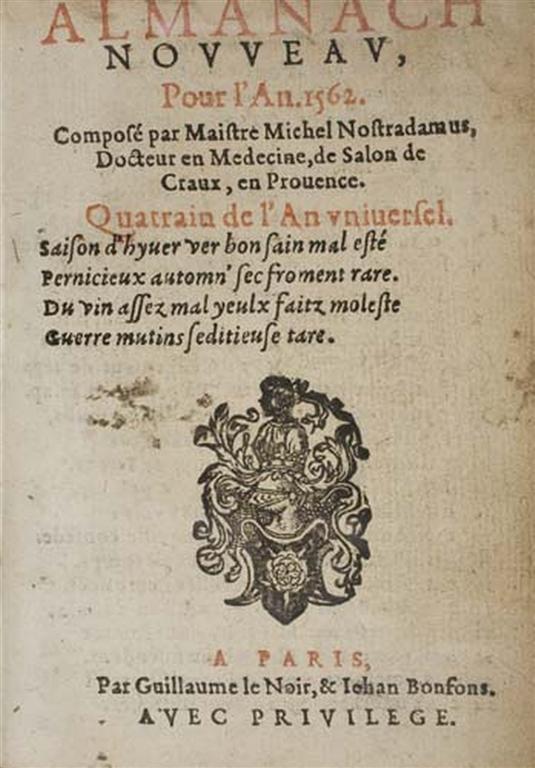 ALMANACH
NOVVEAV,
Pour l'An.1562.
Composé par Maiſtre Michel Noſtradamus,
Docteur en Medecine, de Salon de
Craux, en Prouence.
Quatrain de l'An vniuerſel.
Saiſon d'hyuer ver bon ſain mal eſté
Pernicieux automn' ſec froment rare.
Du vin aſſez mal yeulx faitz moleſte
Guerre mutins ſeditieuſe tare.
A PARIS,
Par Guillaume le Noir, & Iehan Bonfons.
AVEC PRIVILEGE.